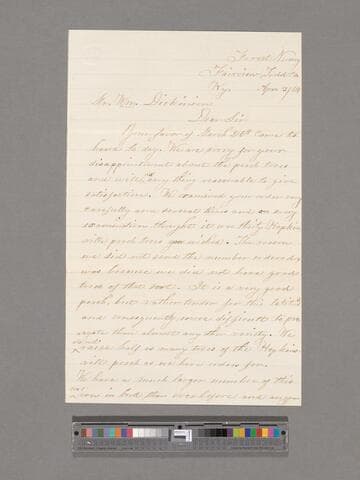 Forest Nursery
Fairview, Todd Co
Ky. Apr 2,
Mr. Wm. Dickinson
Dear Sir
Your favor of March 26th came to
hand to day. We are sorry for your
disappointment about the peach trees
and will do any thing reasonable to give
satisfaction. We examined your order very
carefully and several times and on every
examination thought it was thirty Hopkins-
ville peach trees you wished. The reason
we did not send the number ordered
was because we did not have good
trees of that sort. It is a very good
peach, but rather tender for this latitude
and consequently more difficult to pro-
agate than almost any other variety. We
raise half as many trees of the Hopkins-
ville peach as we have orders for.
We have a much larger number of this
now in bud than ever before and